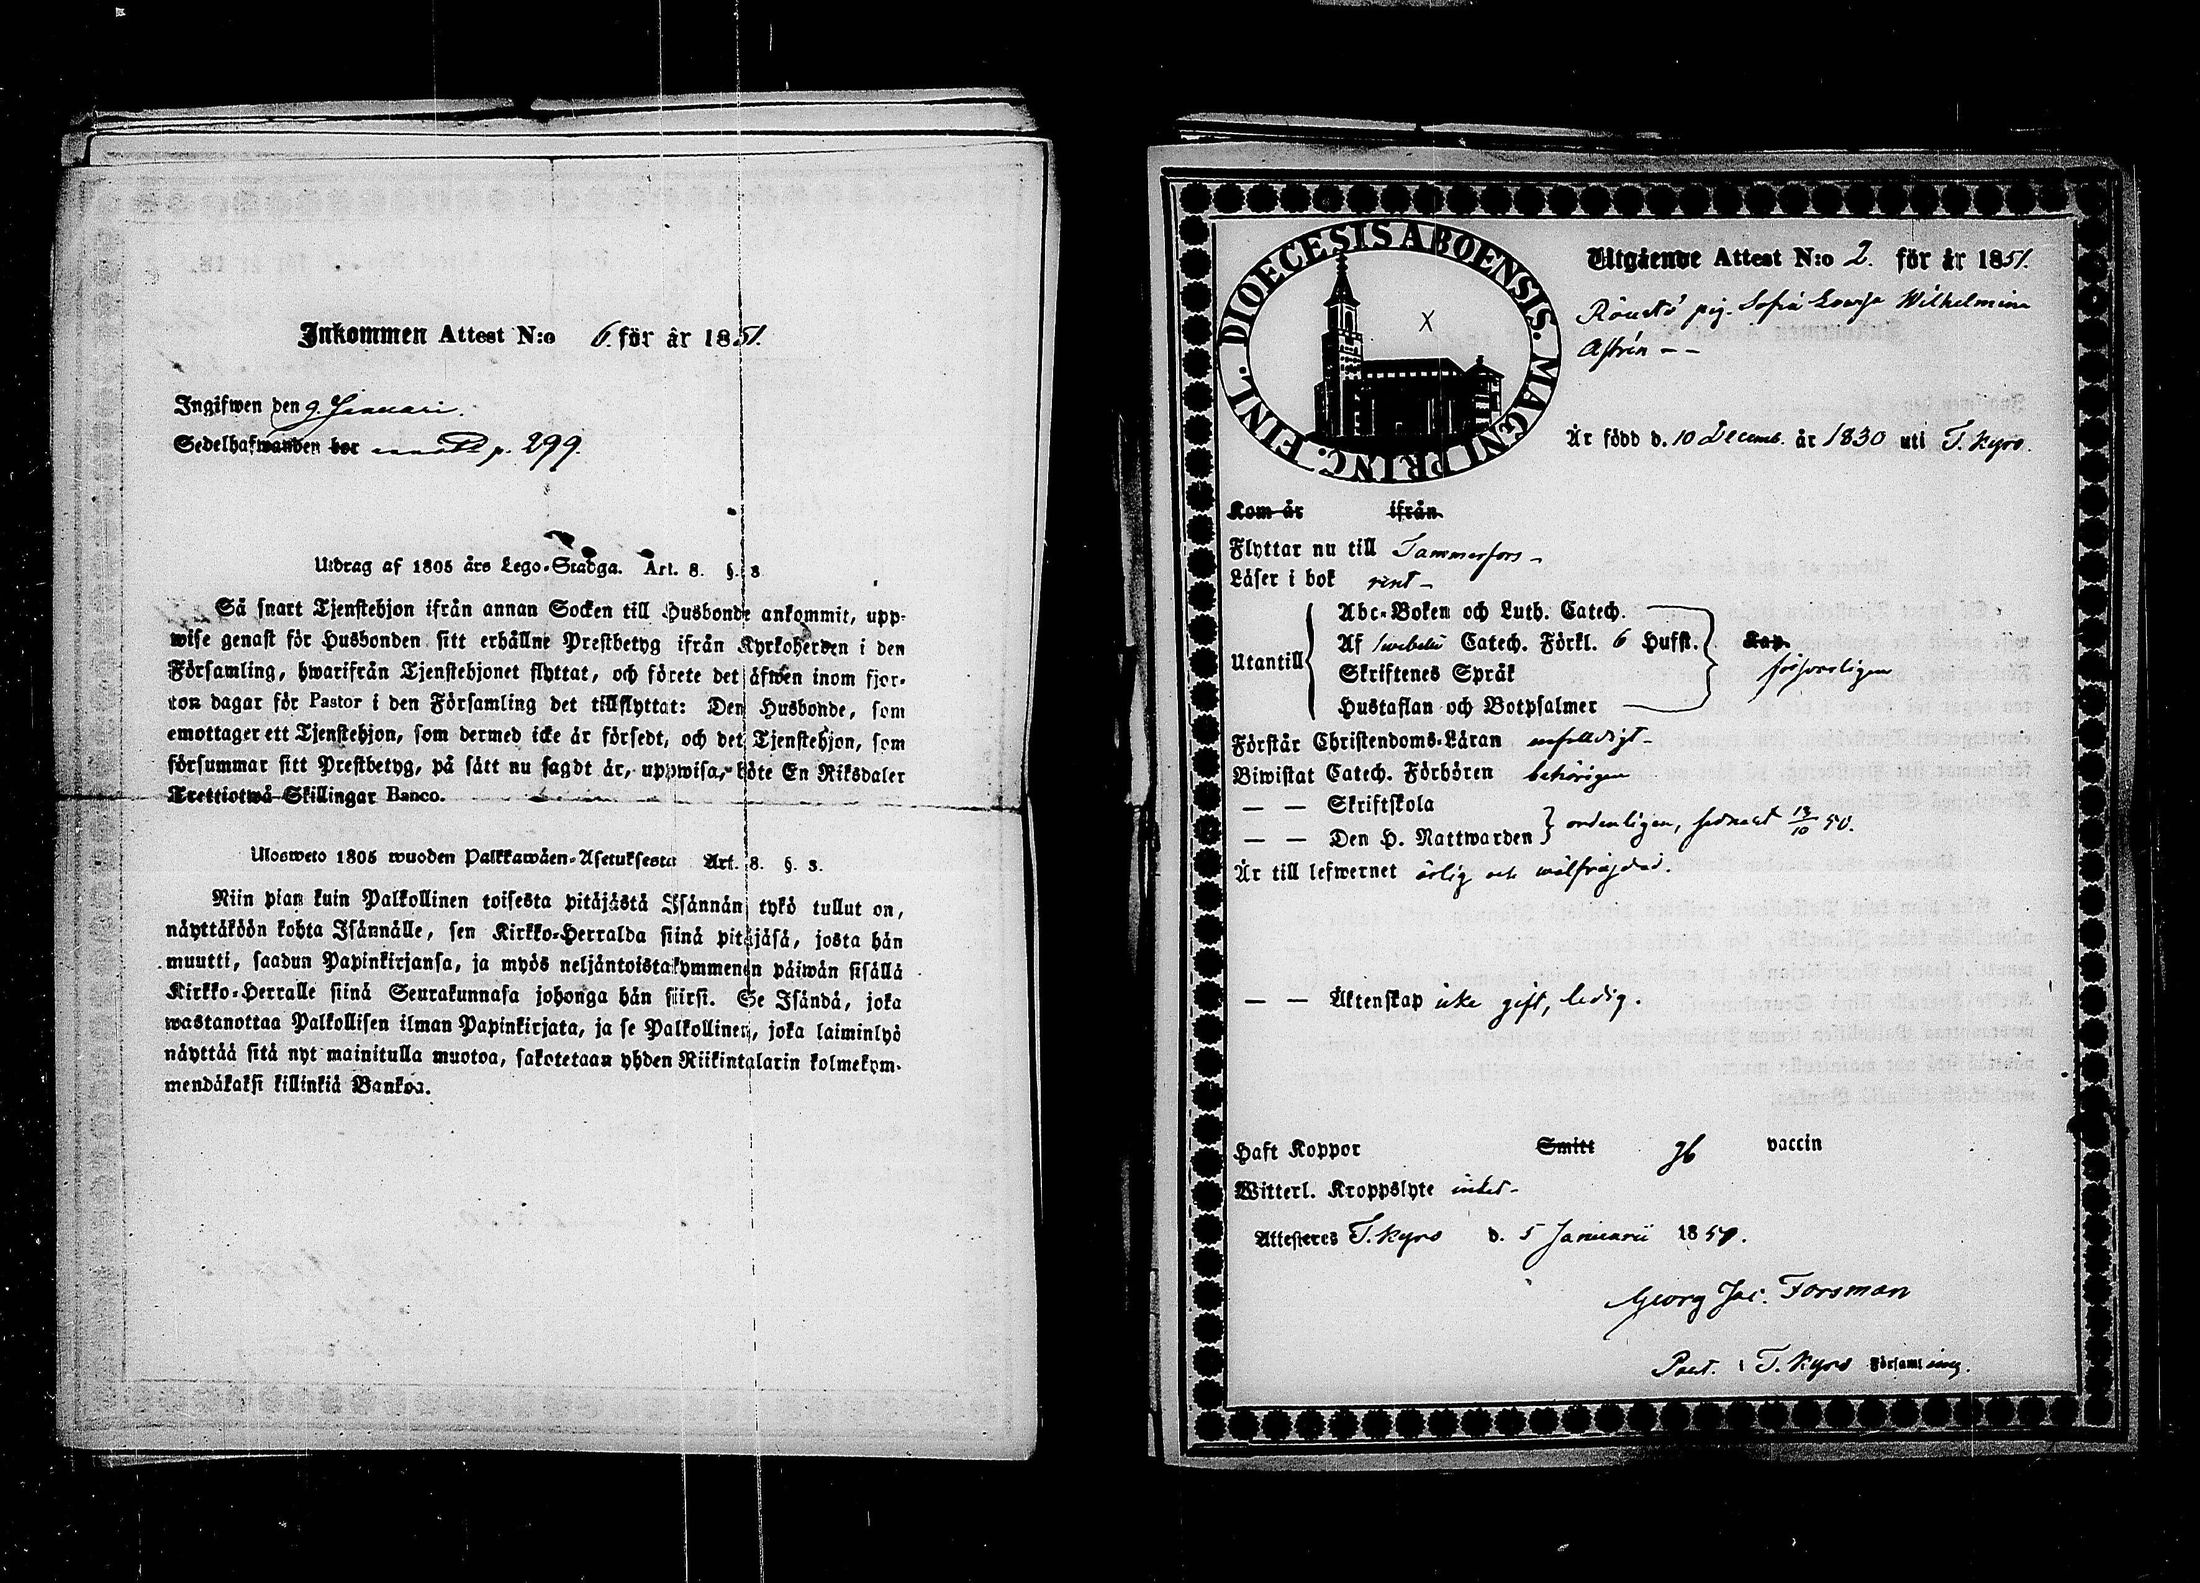 Inkommen Attest N:o 6. för år 1851.
Ingifwen den 9 Januari.
Sedelhafwanden bor p. 299.
Utdrag af 1805 års Lego-Stadga. Art. 8. §. 3
Så snart Tjenstehjon ifrån annan Socken till Husbonde ankommit, upp-
wise genast för Husbonden sitt erhållne Prestbetyg ifrån Kyrkoherden i den
Församling, hwarifrån Tjenstehjonet flyttat, och förete det äfwen inom fjor-
ton dagar för Pastor i den Församling det tillflyttat: Den Husbonde, som
emottager ett Tjenstehjon, som dermed icke är försedt, och det Tjenstehjon, som
försummar sitt Prestbetyg, på sätt nu sagdt är, uppwisa, böte En Riksdaler
Trettiotwå Skillingar Banco.
Ulosweto 1805 wuoden Palkkawäen-Asetuksesta Art. 8. §. 3.
Niin pian kuin Palkollinen toisesta pitäjästä Isännän tykö tullut on,
näyttäköön kohta Isännälle, sen Kirkko-Herralda siinä pitäjäsä, josta hän
muutti, saadun Papinkirjansa, ja myös neljäntoistakymmenen päiwän sisällä
Kirkko-Herralle siinä Seurakunnasa johonga hän siirsi. Se Isändä, joka
wastanottaa Palkollisen ilman Papinkirjata, ja se Palkollinen, joka laiminlyö
näyttää sitä nyt mainitulla muotoa, sakotetaan yhden Riikintalarin kolmekym-
mendäkaksi killinkiä Bankoa.
DIOECESIS ABOENSIS. MAGNI PRINC. FINL.
X
Utgående Attest N:o 2. för år 1851.
pig. Sofia Lovisa Wilhelmina
Astrén - -
Är född d. 10 Decemb. år 1830 uti T. kyro.
Kom år ifrån
Flyttar nu till Tammerfors -
Läser i bok rent -
Utantill
Abc-Boken och Luth. Catech.
Af Swebelii Catech. Förkl. 6 Hufst. Kap.
Skriftenes Språk försvarligen
Hustaflan och Botpsalmer
Förstår Christendoms-Läran enfaldigt -
Biwistat Catech. Förhören behörigen
— — Skriftskola
— — Den H. Nattwarden ordentligen, sednast 13/10 50.
Är till lefwernet ärlig och wälfräjdad.
— — Äktenskap icke gift, ledig.
Haft Koppor Smitt gb vaccin
Witterl. Kroppslyte intet -
Attesteres T. kyro d. 5 Januarii 1851.
Georg Jac. Forsman
Past. i T. Kyro Församling.